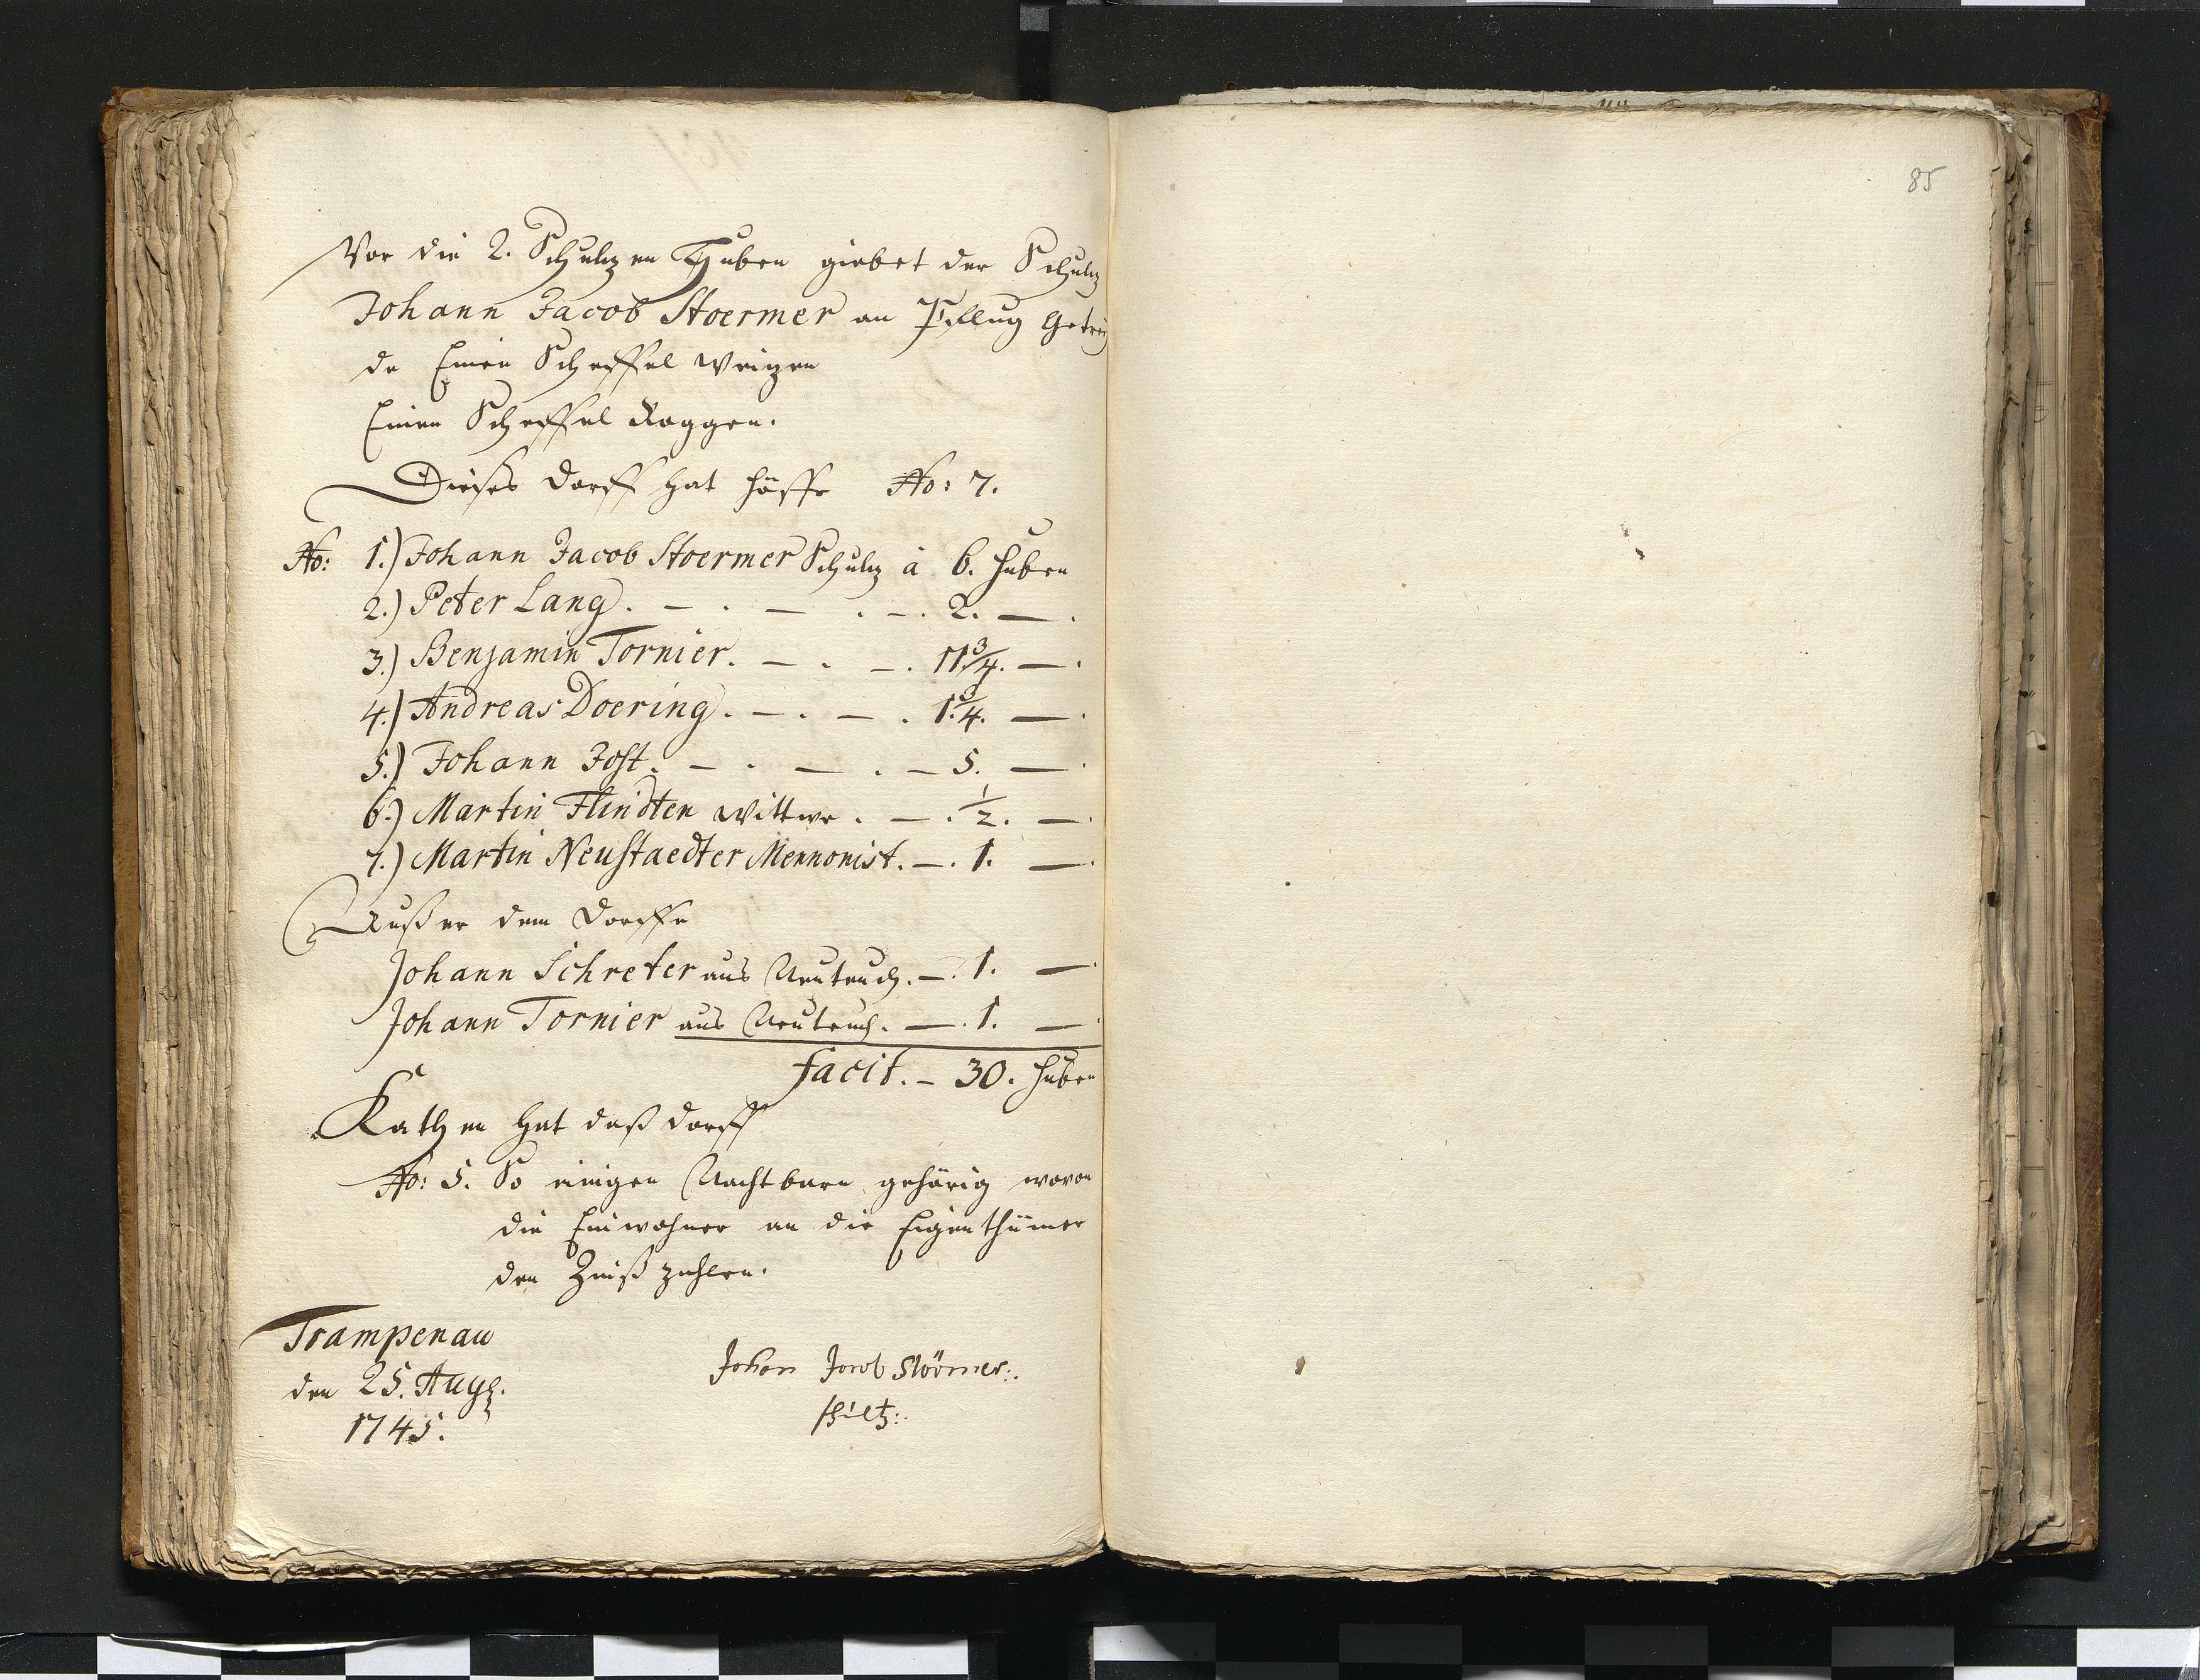 85
Vor die 2. Schultzen Huben giebet der Schultz
Johann Jacob Stoermer an Pflug Getrey
de Einen Scheffel Weitzen
Einen Scheffel Roggen.
Dieses Dorff hat Höffe No: 7.
No: 1.) Johann Jacob Stoermer Schultz à 6. Huben
2.) Peter Lang. — . — . — . 2. — .
3.) Benjamin Tornier. — . — . 11 3/4. — .
4.) Andreas Doering. — . — . 1. 3/4. — .
5.) Johann Jost. — . — . — 5. — .
6.) Martin Flindten Wittwe. — . 1/2. — .
7.) Martin Neustaedter Mennonist. — . 1. — .
Ausser dem Dorffe
Johann Schreter aus Neuteich. — . 1. — .
Johann Tornier aus Neuteich. — . 1. — .
facit. — 30. Huben
Kathen hat daß Dorff
No: 5. So einigen Nachtbarn gehörig wovon
die Einwohner an die Eigenthümer
den Zinß zahlen.
Trampenau
den 25. Aug:
1745.
Johan Jacob Störmer:.
schultz:.